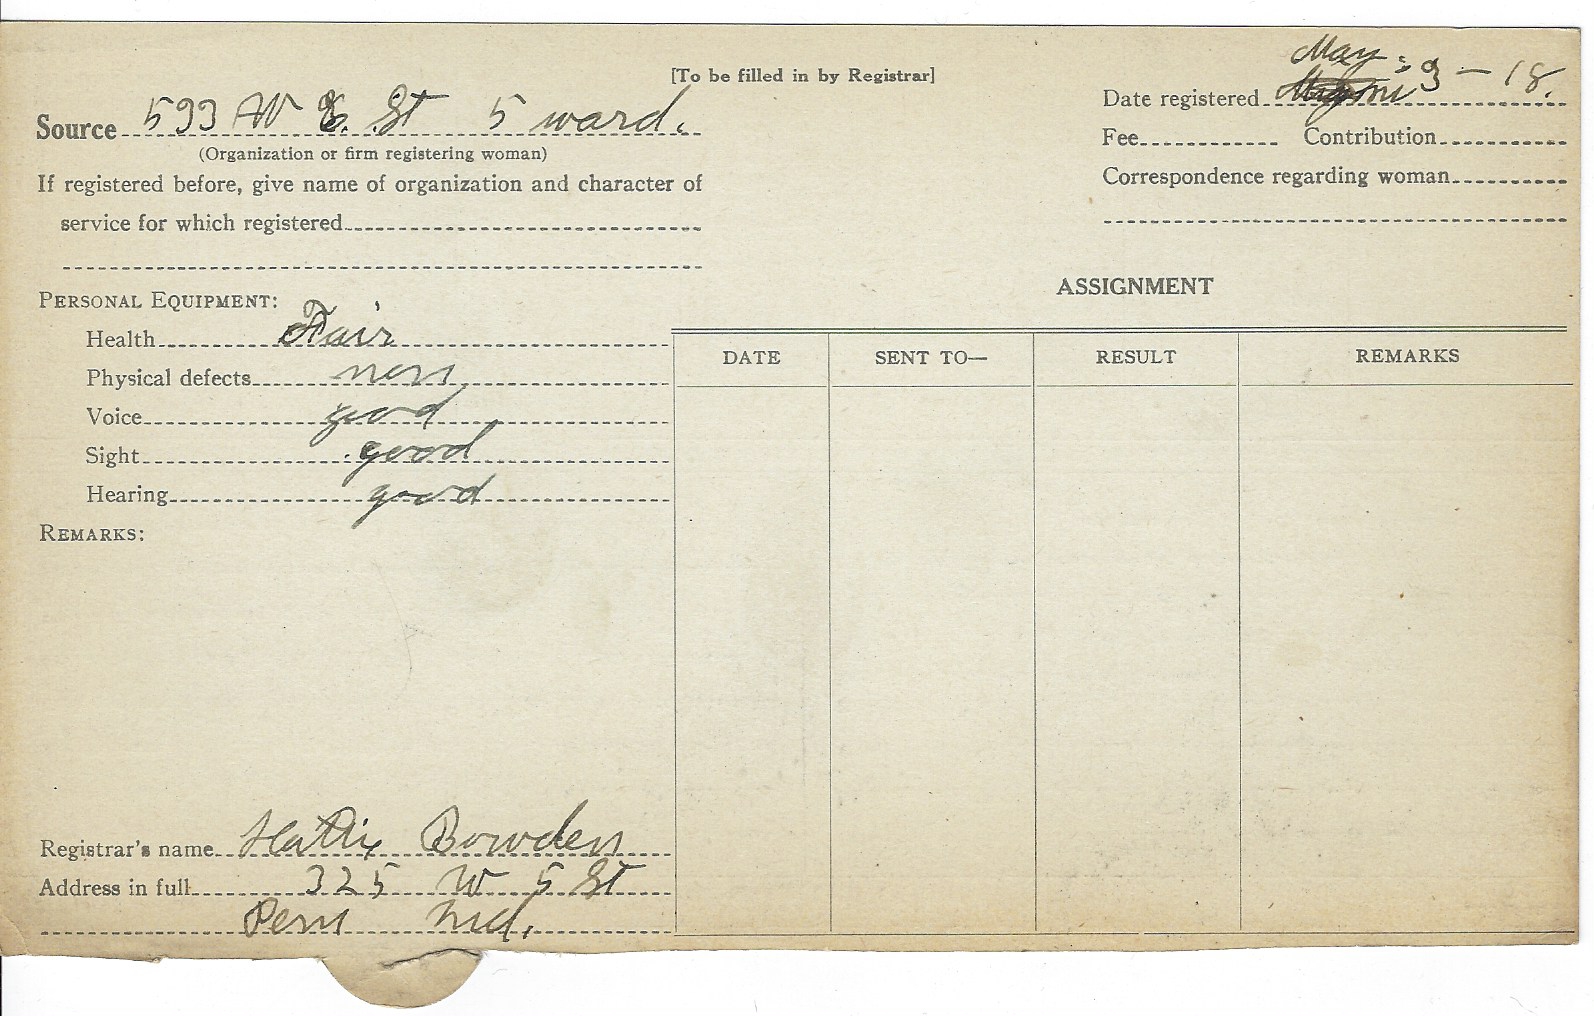 [To be filled in by Registrar]
Source 533 W 6. St 5 ward.
(Organization or firm registering woman)
If registered before, give name of organization and character of
service for which registered
Date registered May 3 - 18.
Fee Contribution
Correspondence regarding woman
PERSONAL EQUIPMENT:
Health Fair
Physical defects non
Voice good
Sight good
Hearing good
REMARKS:
ASSIGNMENT
DATE SENT TO— RESULT REMARKS
Registrar's name Hattie Bowden
Address in full 325 W 5 St
Peru Ind.